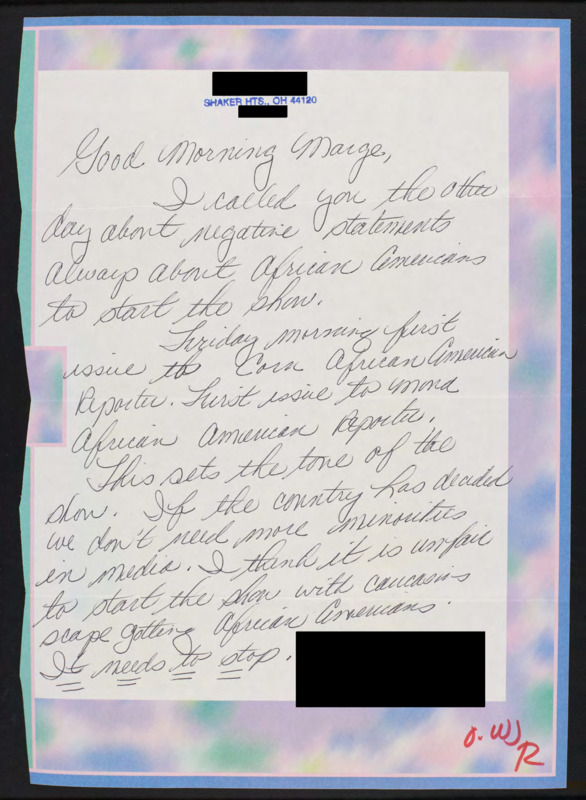 SHAKER HTS., OH 44120
Good Morning Marge,
I called you the other
day about negative statements
always about African Americans
to start the show.
Friday morning first
issue to Cora African American
Reporter. First issue to Mona
African American Reporter.
This sets the tone of the
show. If the country has decided
we don't need more minorities
in media. I think it is unfair
to start the show with caucasins
scape gotting African Americans.
It needs to stop.
O.W
R